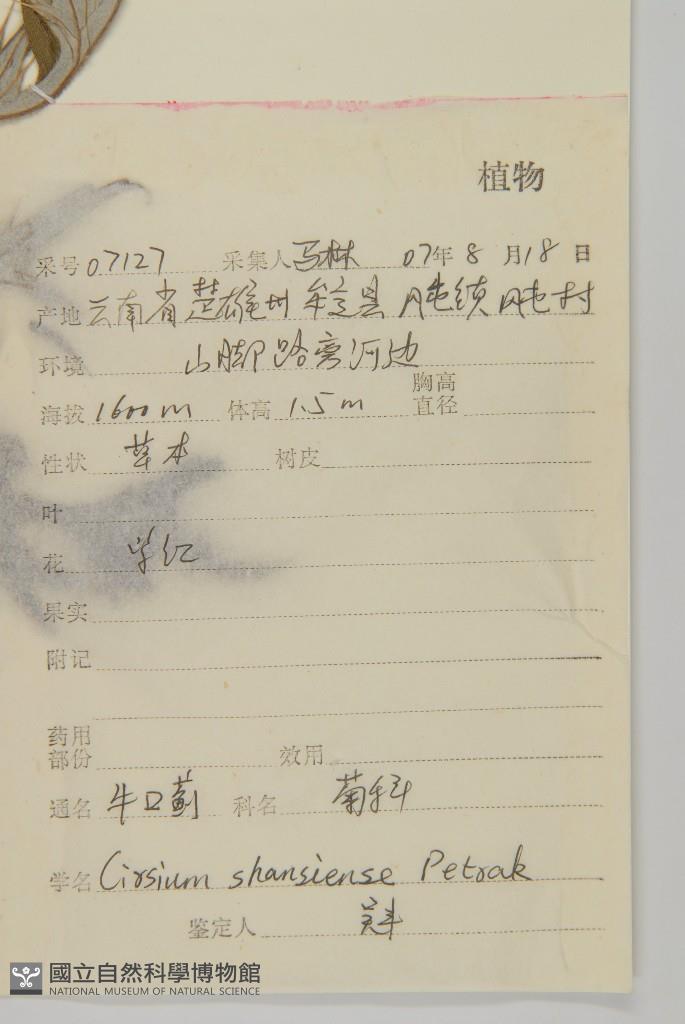 植物
采号 07127 采集人 马林 07年 8 月 18 日
产地 云南省 楚雄州 牟定县 戌街镇 戌街村
环境 山脚路旁河边
海拨 1600 m 体高 1.5 m 胸高直径
性状 草本 树皮
叶
花 紫红
果实
附记
药用部份 效用
通名 牛口蓟 科名 菊科
学名 Cirsium shansiense Petrak
鉴定人
國立自然科學博物館
NATIONAL MUSEUM OF NATURAL SCIENCE